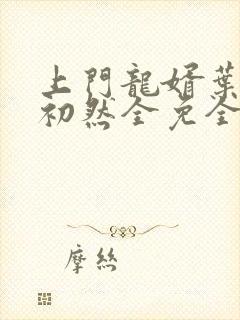 上門龍婿葉
初然全免全
摩絲